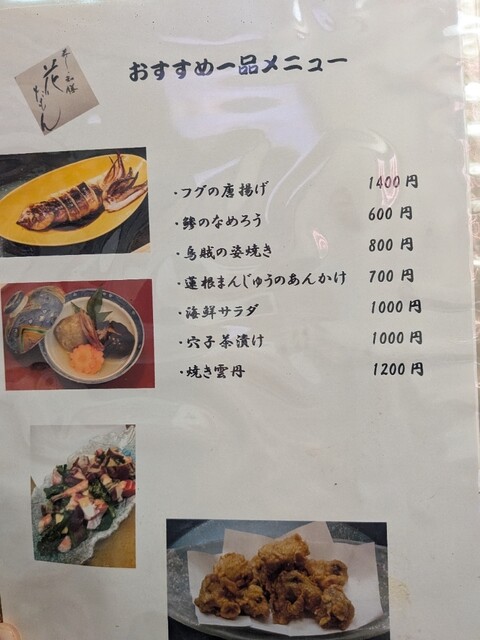 おすすめ一品メニュー
・フグの唐揚げ 1400円
・鯵のなめろう 600円
・烏賊の姿焼き 800円
・蓮根まんじゅうのあんかけ 700円
・海鮮サラダ 1000円
・穴子茶漬け 1000円
・焼き雲丹 1200円